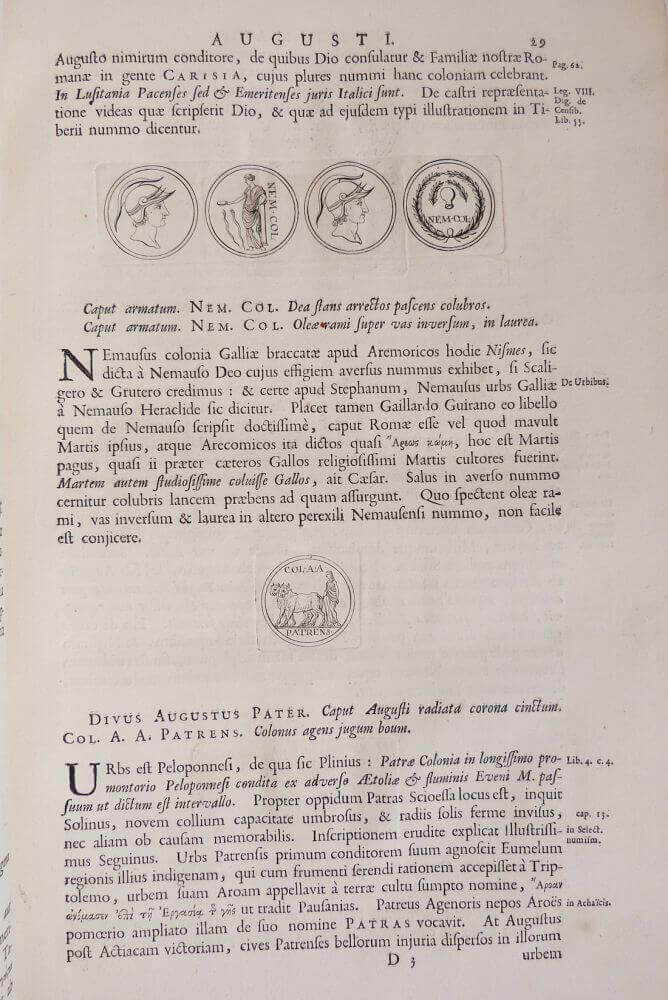 AUGUSTI. 29
Augusto nimirum conditore, de quibus Dio consulatur & Familiæ nostræ Ro- Pag. 62.
manæ in gente CARISIA, cujus plures nummi hanc coloniam celebrant.
In Lusitania Pacenses sed & Emeritenses juris Italici sunt. De castri repræsenta- Leg. VIII.
tione videas quæ scripserit Dio, & quæ ad ejusdem typi illustrationem in Ti- Dig. de Censib.
berii nummo dicentur. Lib. 53.
NEM·COL
NEM·COL
Caput armatum. NEM. COL. Dea stans arrectos pascens colubros.
Caput armatum. NEM. COL. Oleæ rami super vas inversum, in laurea.
NEmausus colonia Galliæ braccatæ apud Aremoricos hodie Nismes, sic
dicta à Nemauso Deo cujus effigiem aversus nummus exhibet, si Scali-
gero & Grutero credimus : & certe apud Stephanum, Nemausus urbs Galliæ De Urbibus.
à Nemauso Heraclide sic dicitur. Placet tamen Gaillardo Guirano eo libello
quem de Nemauso scripsit doctissimè, caput Romæ esse vel quod mavult
Martis ipsius, atque Arecomicos ita dictos quasi Ἄρεως κώμη, hoc est Martis
pagus, quasi ii præter cæteros Gallos religiosissimi Martis cultores fuerint.
Martem autem studiosissime coluisse Gallos, ait Cæsar. Salus in averso nummo
cernitur colubris lancem præbens ad quam assurgunt. Quo spectent oleæ ra-
mi, vas inversum & laurea in altero perexili Nemausensi nummo, non facile
est conjicere.
COL·A·A
PATRENS
DIVUS AUGUSTUS PATER. Caput Augusti radiata corona cinctum.
COL. A. A. PATRENS. Colonus agens jugum boum.
URbs est Peloponnesi, de qua sic Plinius : Patræ Colonia in longissimo pro- Lib. 4. c. 4.
montorio Peloponnesi condita ex adverso Ætoliæ & fluminis Eveni M. pas-
suum ut dictum est intervallo. Propter oppidum Patras Scioessa locus est, inquit
Solinus, novem collium capacitate umbrosus, & radiis solis ferme invisus, cap. 13.
nec aliam ob causam memorabilis. Inscriptionem erudite explicat Illustrissi- in Select.
mus Seguinus. Urbs Patrensis primum conditorem suum agnoscit Eumelum numism.
regionis illius indigenam, qui cum frumenti serendi rationem accepisset à Trip-
tolemo, urbem suam Aroam appellavit à terræ cultu sumpto nomine, Ἀρόαν
ὠνόμασεν ἐπὶ τῇ Ἐργασίᾳ τ͂ γῆς ut tradit Pausanias. Patreus Agenoris nepos Aroës in Achaïcis.
pomœrio ampliato illam de suo nomine PATRAS vocavit. At Augustus
post Actiacam victoriam, cives Patrenses bellorum injuria dispersos in illorum
D 3 urbem